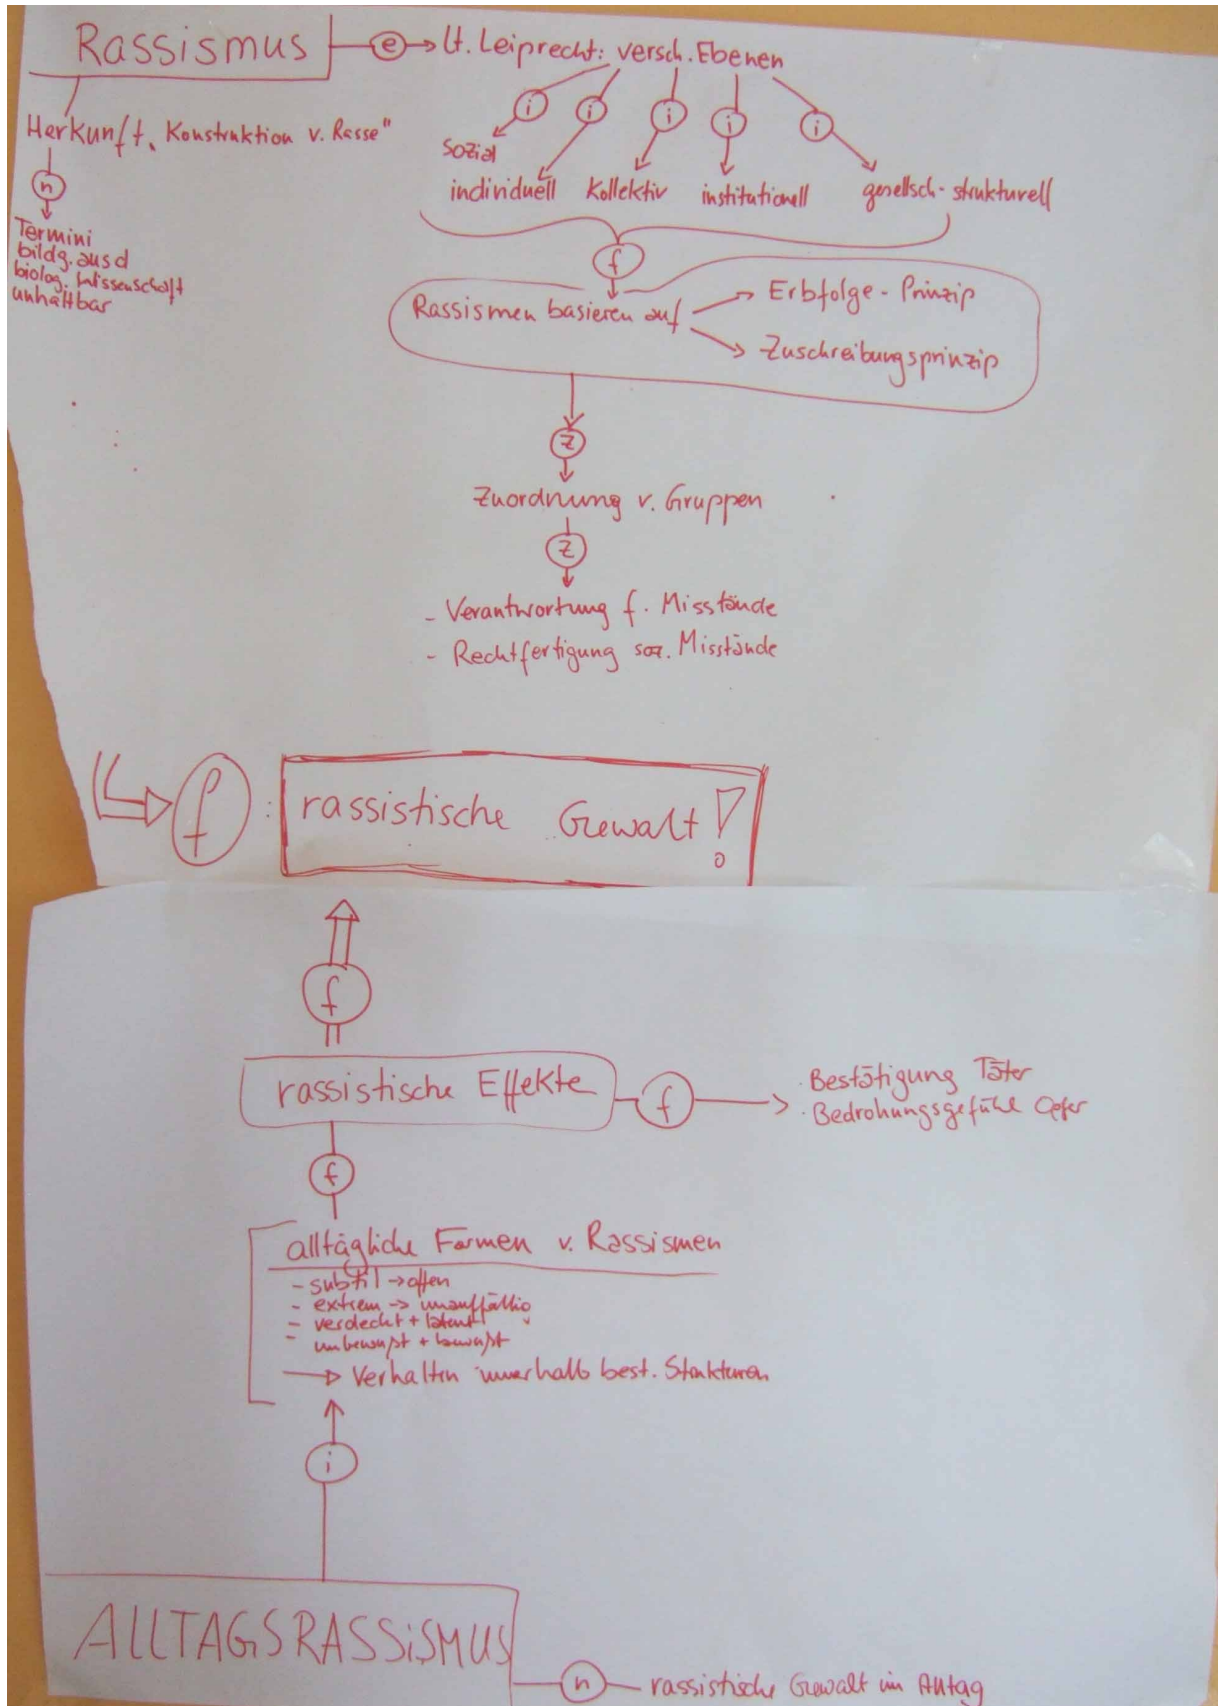 Rassismus
e
lt. Leiprecht: versch. Ebenen
Herkunft „Konstruktion v. Rasse"
i i i i i
n
sozial
individuell kollektiv institutionell gesellsch-strukturell
Termini
bildg. aus d
biolog. Wissenschaft
unhaltbar
f
Rassismen basieren auf
Erbfolge-Prinzip
Zuschreibungsprinzip
z
Zuordnung v. Gruppen
z
- Verantwortung f. Misstände
- Rechtfertigung soz. Misstände
f : rassistische Gewalt!
f
rassistische Effekte
f
· Bestätigung Täter
· Bedrohungsgefühl Opfer
f
alltägliche Formen v. Rassismen
- subtil → offen
- extrem → unauffällig
- verdeckt + latent
- unbewußt + bewußt
→ Verhalten innerhalb best. Strukturen
i
ALLTAGSRASSiSMUS
n
rassistische Gewalt im Alltag